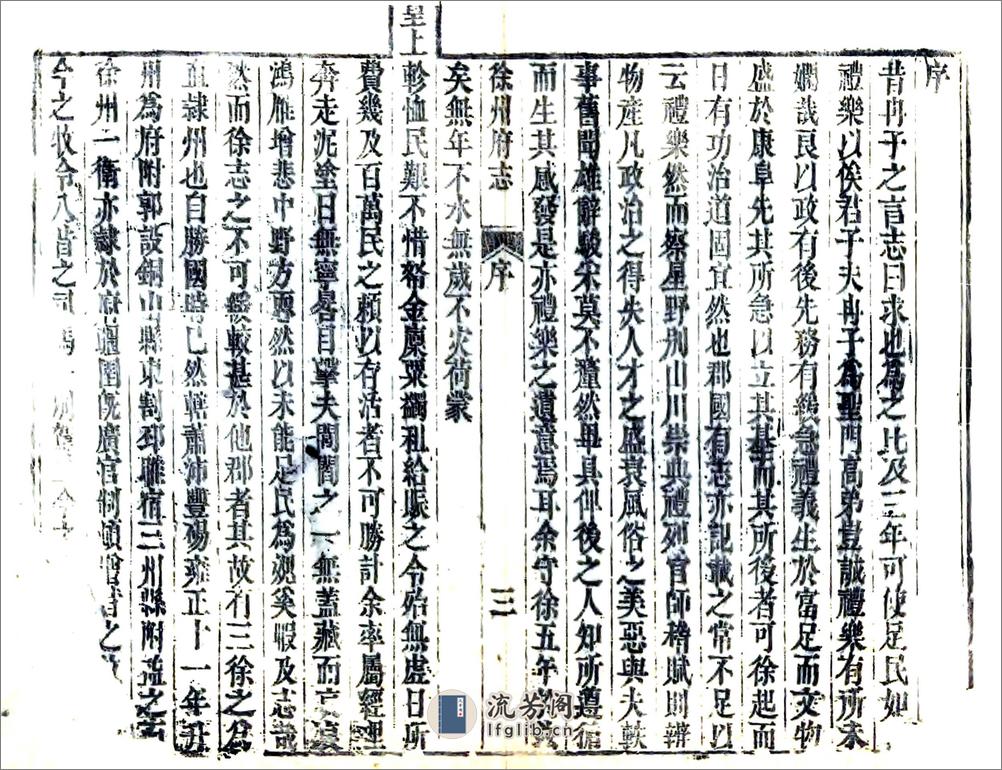 序
昔冉子之言志曰求也為之比及三年可使足民如
禮樂以俟君子夫冉子為聖門高弟豈誠禮樂有所未
嫻哉良以政有後先務有緩急禮義生於富足而文物
盛於康阜先其所急以立其基而其所後者可徐起而
日有功治道固宜然也郡國有志亦記載之常不足以
云禮樂然而察星野別山川崇典禮列官師稽賦則辨
物產凡政治之得失人才之盛衰風俗之美惡與夫軼
事舊聞雄辭駿 莫不釐然畢具俾後之人知所遵循
而生其感發是亦禮樂之遺意焉耳余守徐五年於
徐州府志 序 三
矣無年不水無歲不災荷蒙
皇上軫恤民艱不惜帑金廩粟蠲租給賑之令殆無虛日所
費幾及百萬民之賴以存活者不可勝計余率屬經理
奔走泥塗日無寧晷目擊夫閭閻之一無蓋藏而
鴻雁增悲中野方 然以未能足民為愧奚暇及志哉
然而徐志之不可緩較甚於他郡者其故有三徐之為
直隸州也自勝國時已然轄蕭沛豐碭雍正十一年升
州為府附郭設銅山縣東割邳睢宿三州縣附益之
徐州一衛亦隸於府疆圉既廣官制頓
今之牧令八昔之司
流芳閣
lfglib.cn